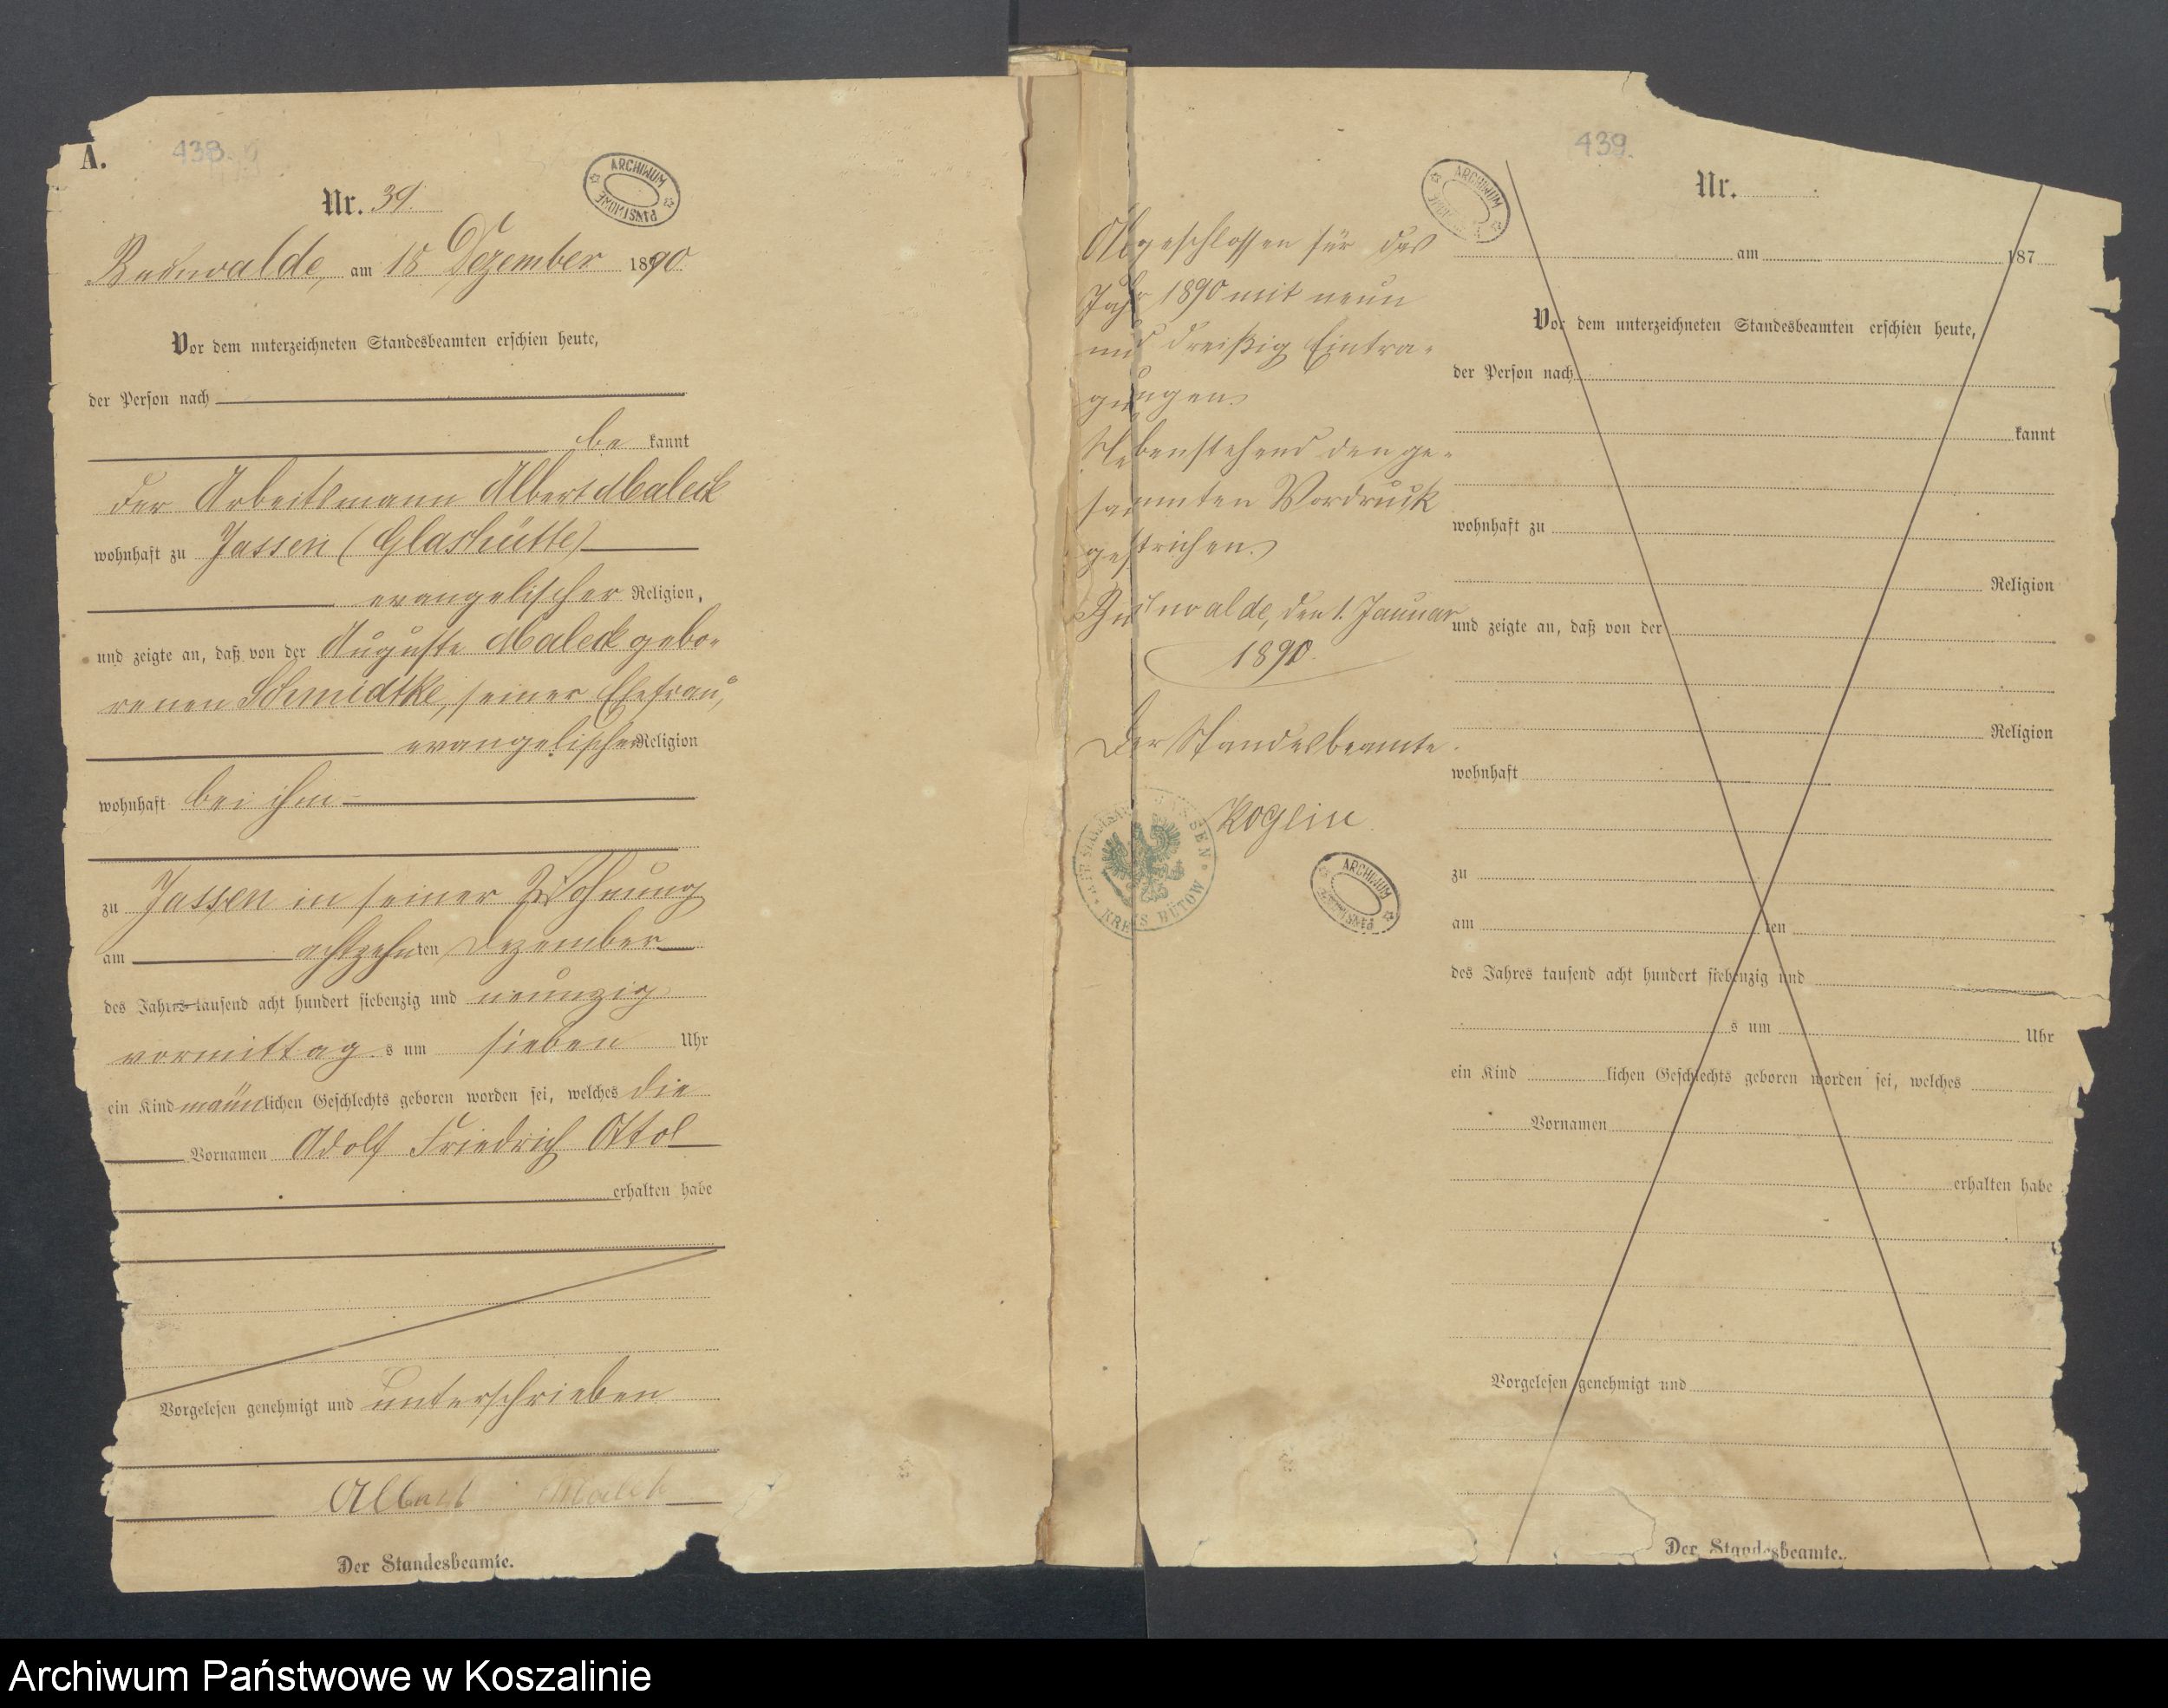 A.
438.
ARCHIWUM PAŃSTWOWE
Nr. 39.
am 18 Dezember 1890
Vor dem unterzeichneten Standesbeamten erschien heute,
der Person nach
be kannt
der Arbeitsmann Albert Maleck
wohnhaft zu Jassen (Glashütte)
evangelischer Religion,
und zeigte an, daß von der Auguste Maleck gebo-
renen Schmidtke, seiner Ehefrau,
evangelischer Religion
wohnhaft bei ihm
zu Jassen in seiner Wohnung
am achtzehn ten Dezember
des Jahres tausend acht hundert siebenzig und neunzig
vormittag s um sieben Uhr
ein Kind männ lichen Geschlechts geboren worden sei, welches die
Vornamen Adolf Friedrich
erhalten habe
Vorgelesen genehmigt und unterschrieben
Albert Maleck
Der Standesbeamte.
Abgeschlossen für das
Jahr 1890 mit neun
und dreißig Eintra-
gungen.
Nebenstehend den ge-
sammten Vordruck
gestrichen.
den 1. Januar
1890.
Der Standesbeamte.
Kogein
JASSEN KREIS BÜTOW
ARCHIWUM PAŃSTWOWE
439.
ARCHIWUM
Nr.
am 187
Vor dem unterzeichneten Standesbeamten erschien heute,
der Person nach
kannt
wohnhaft zu
Religion
und zeigte an, daß von der
Religion
wohnhaft
zu
am ten
des Jahres tausend acht hundert siebenzig und
s um Uhr
ein Kind lichen Geschlechts geboren worden sei, welches
Vornamen
erhalten habe
Vorgelesen genehmigt und
Der Standesbeamte.
Archiwum Państwowe w Koszalinie